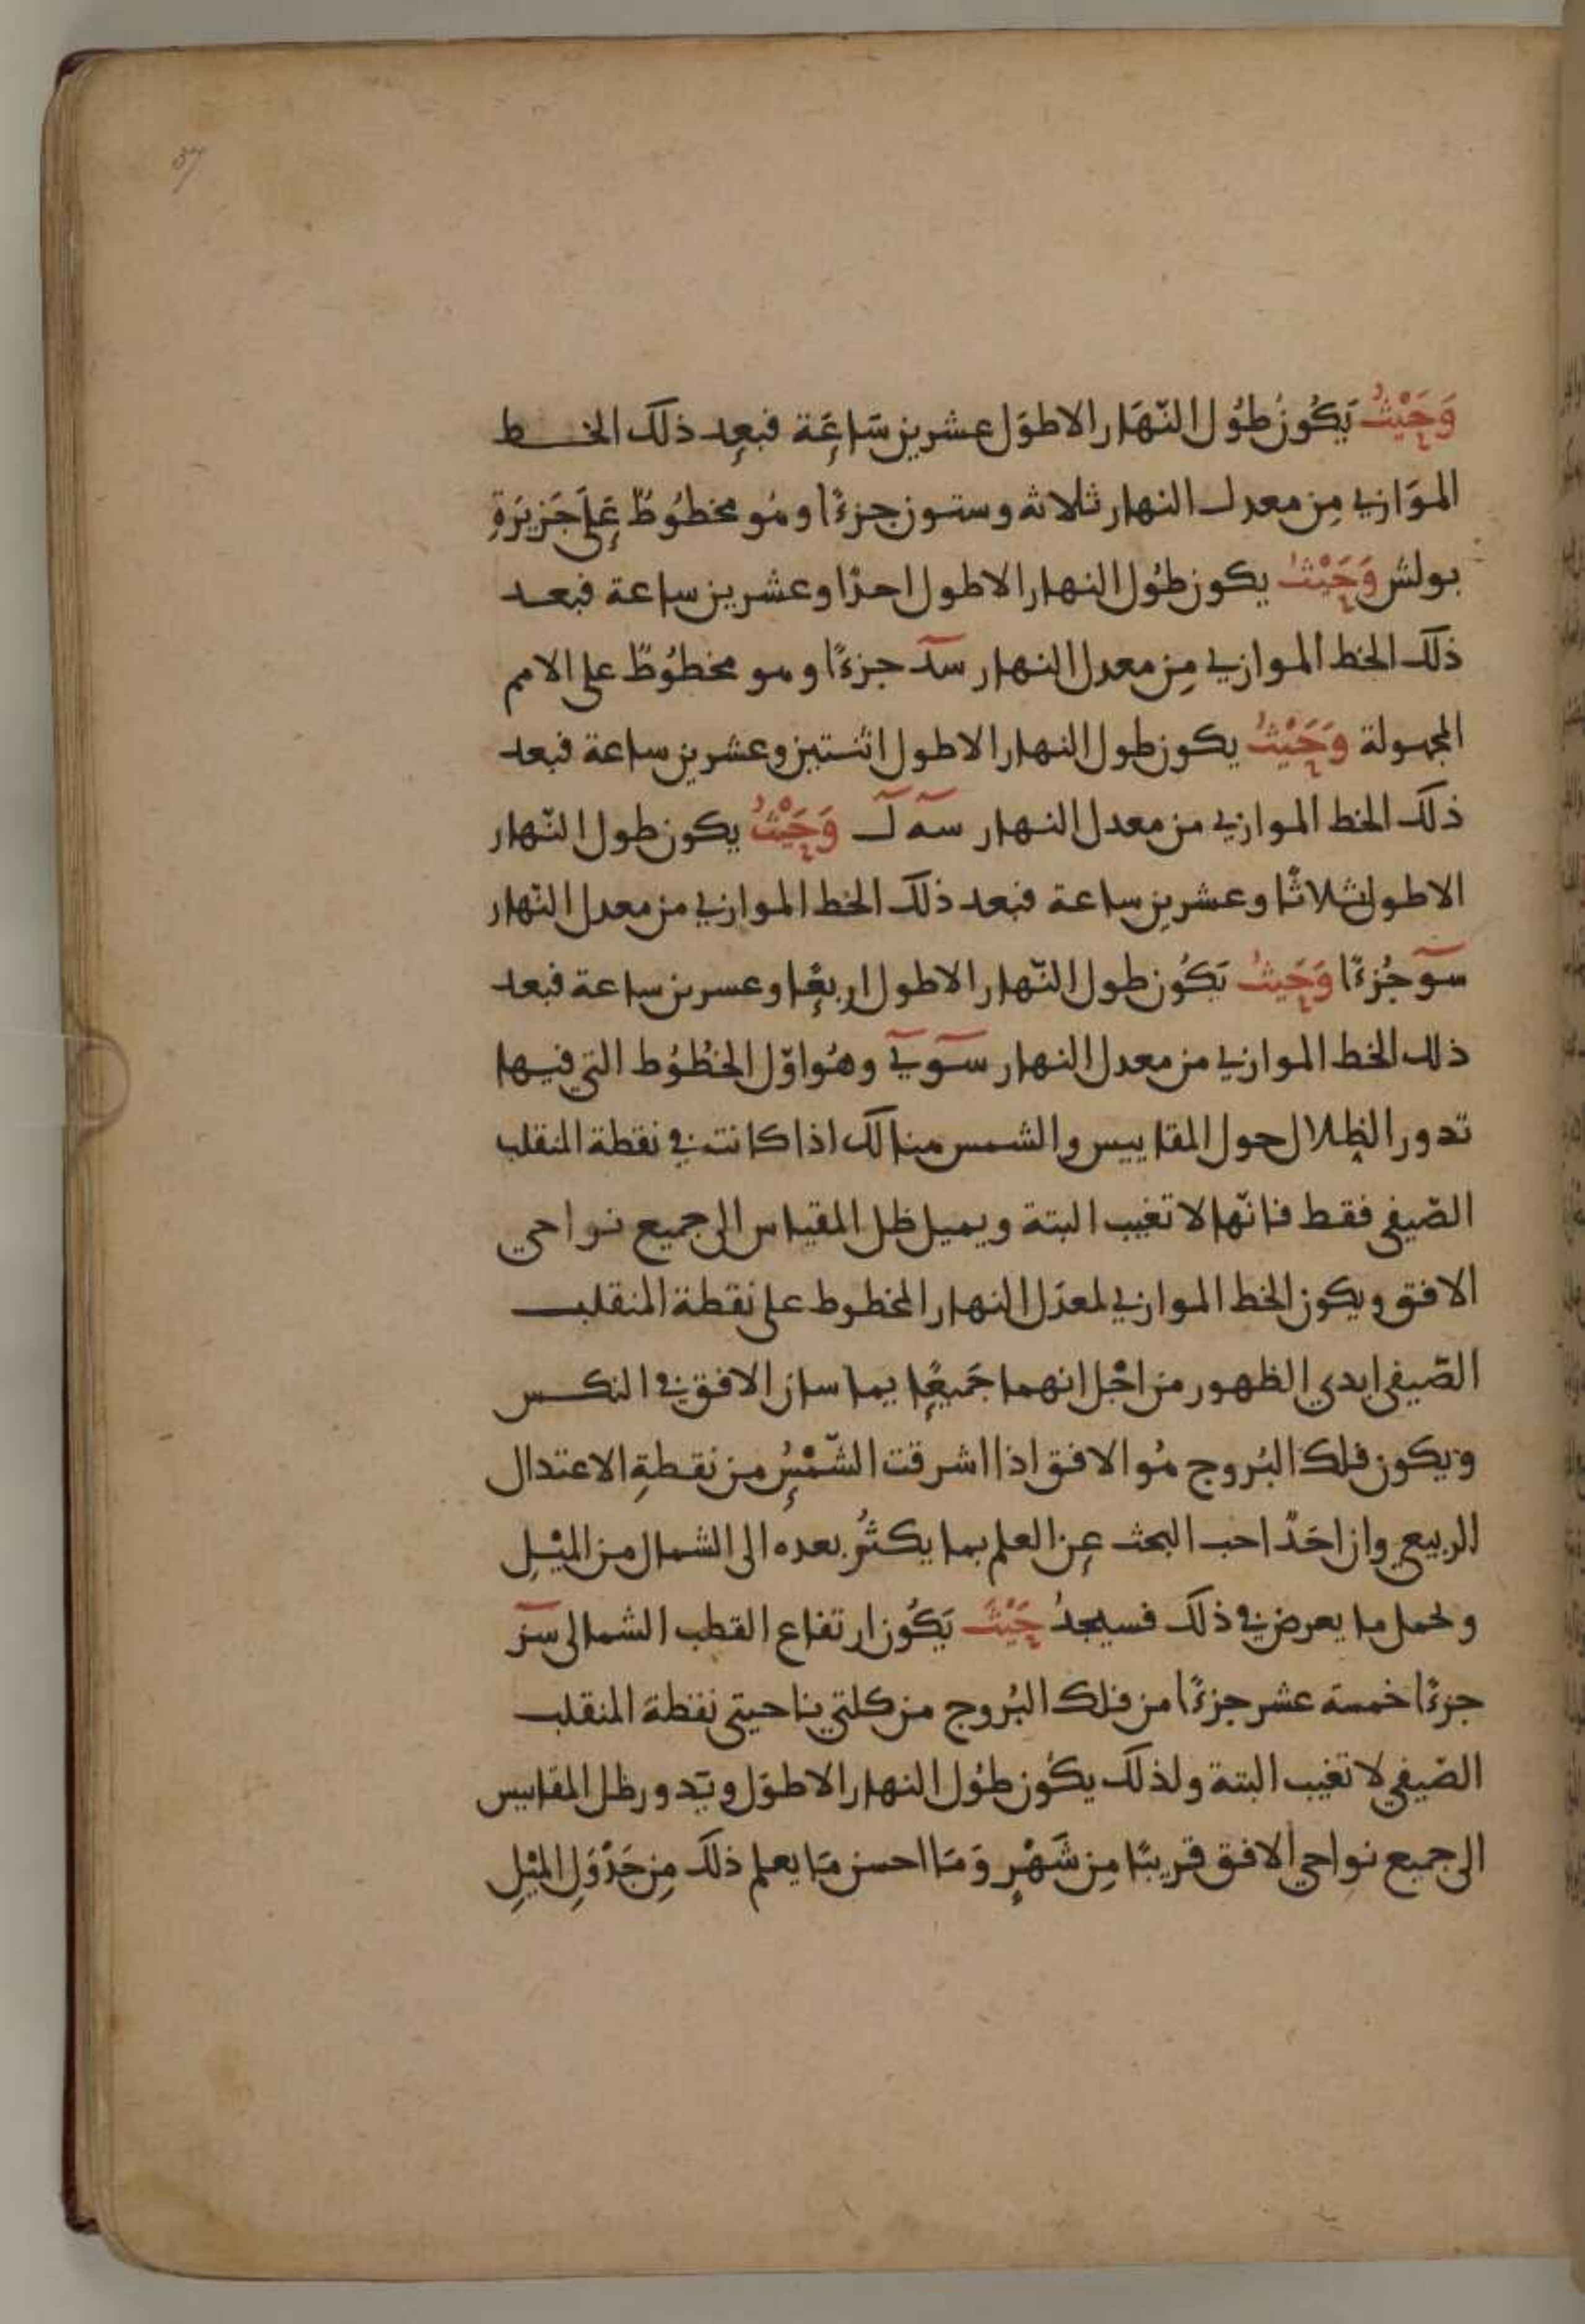 37
وَحَيْثُ يَكُونُ طُول النّهَار الاطوَل عشرين سَاعَة فبعد ذلك الخط
الموَازي مِن معدل النهار ثلاثه وستون جزءًا وهُو مخطُوطٌ عَلَى جَزيرَةِ
بولش وَحَيْثُ يكون طوُل النهار الاطول احدًا وعشرين ساعة فبعد
ذلك الخط الموازي مِن معدل النهار سد جزءًا وهو مخطُوطٌ على الامم
المجهولة وَحَيْثُ يكون طول النهار الاطول اثنتين وعشرين ساعة فبعد
ذلك الخط الموازي من معدل النهار سه ل وَحَيْثُ يكون طول النّهار
الاطول ثلاثًا وعشرين ساعة فبعد ذلك الخط الموازي من معدل النّهار
سو جُزءًا وَحَيثُ يَكُون طول النّهار الاطول اربعًا وعسرين ساعة فبعد
ذلك الخط الموازي من معدل النهار سو ي وهُو اوّل الخُطُوط التي فيها
تدور الظلال حول المقاييس والشمس هنالك اذا كانت في نقطة المنقلب
الصّيفي فقط فانّها لا تغيب البتة ويميل ظل المقياس الى جميع نواحي
الافق ويكون الخط الموازي لمعدّل النهار المخطوط على نقطة المنقلب
الصّيفي ابدي الظهور من اجْل انهما جَميعًا يماسان الافق في النكس
ويكون فلك البُروج هُو الافق اذا اشرقت الشّمْسُ من نقطةِ الاعتدال
الربيعي وان احَدٌ احب البحث عن العلم بما يكثُر بعده الى الشمال من الميْلِ
ولحمل ما يعرض في ذلك فسيجدُ حَيْثُ يَكُون ارتفاع القطب الشمالى سز
جزءًا خمسة عشر جزءًا من فلك البُروج من كلتي ناحيتي نقطة المنقلب
الصّيفي لا تغيب البتة ولذلك يكُون طوُل النهار الاطوَل ويَدور ظل المقاييس
الى جميع نواحي الافق قريبًا مِن شَهْرٍ وَمَا احسن مَا يعلم ذلك مِن جَدْوَلِ الميْلِ